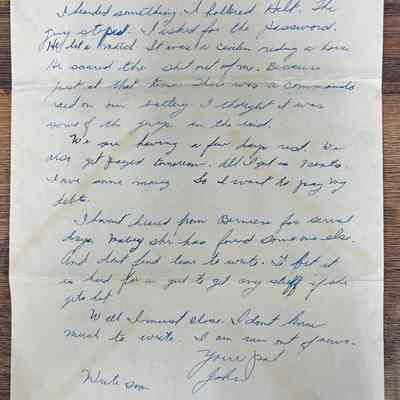 I hearded something. I hollered Halt. The
guy stoped. I asked for the Password.
He lit a match. It was a riding a horse
He scared the shit out of me. Because
just at that time there was a commando
raid on our battery. I thought it was
some of the guys in the raid.
We are having a few days rest. We
also get payed tomorrow. All I got is
I owe some money. So I want to pay my
debts.
I havnt heard from Bernice for serval
days. Mabey she has found someone else.
And dont find time to write. I bet it
is hard for a girl to get any stuff if she
gets let
Well I must close. I dont know
much to write. I am run out of news.
Your pal
John
Write soon